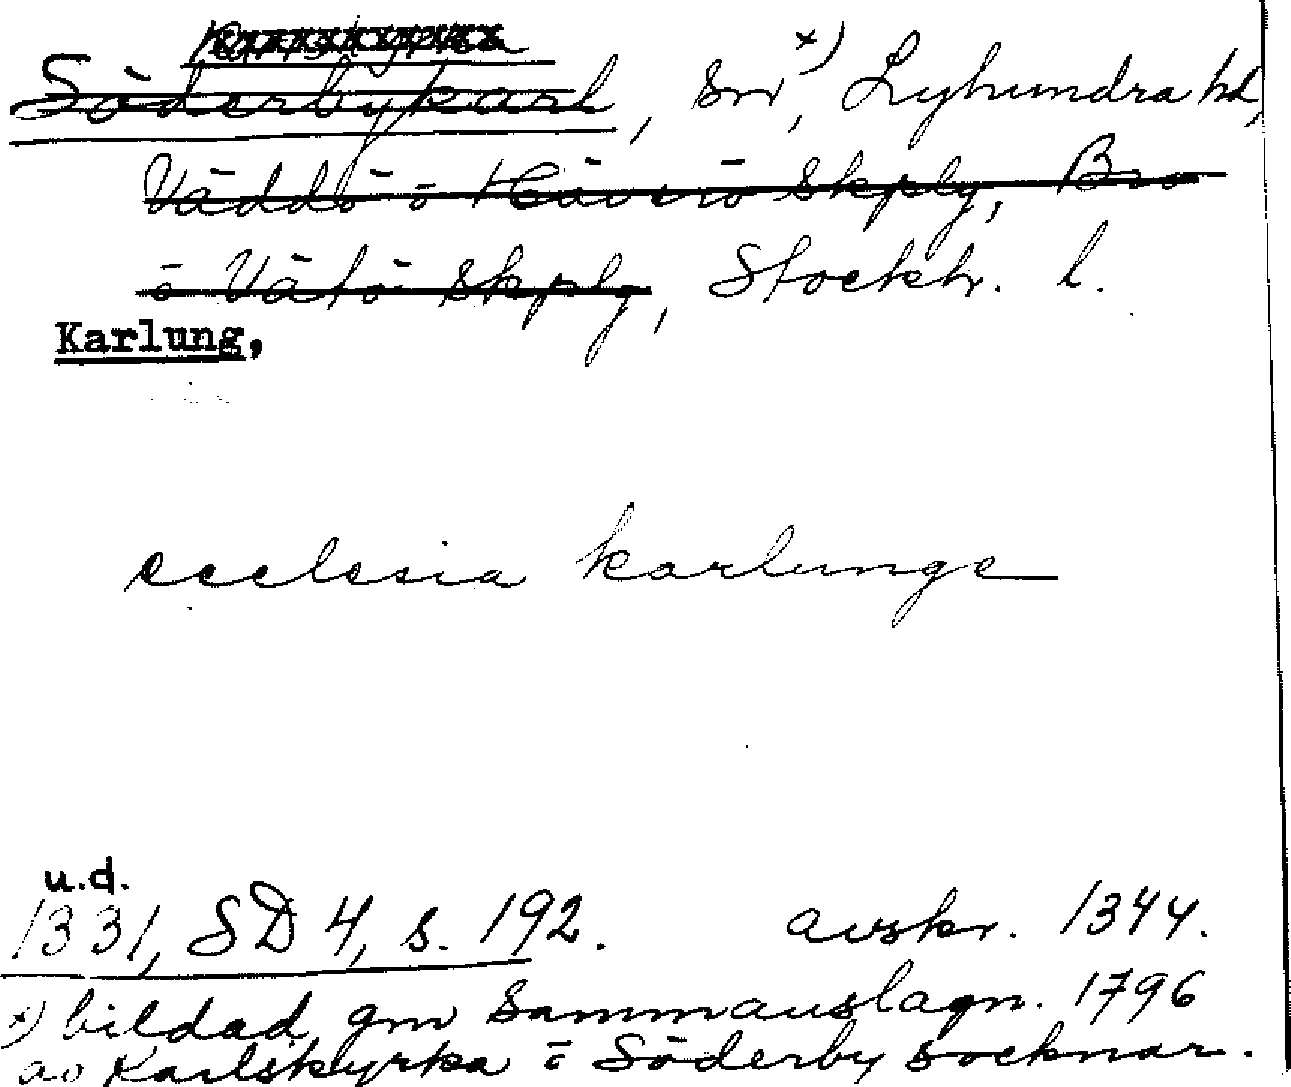 Karlskyrka
Söderbykarl, sn x), Lyhundra hd,
Väddö o Häverö skplg, Bro
o Vätö skplg, Stockh. l.
Karlung,
ecclesia karlunge
u.d.
1331, SD 4, s. 192. avskr. 1344.
x) bildad gm sammanslagn. 1796
av Karlskyrka o Söderby socknar.